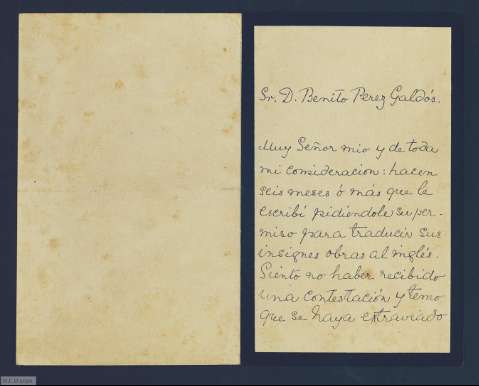 Sr. D. Benito Perez Galdós.
Muy Señor mio y de toda
mi consideracion: hacen
seis meses ó más que le
escribí pidiéndole su per-
miso para traducir sus
insignes obras al inglés.
Siento no haber recibido
una contestación y temo
que se haya extraviado